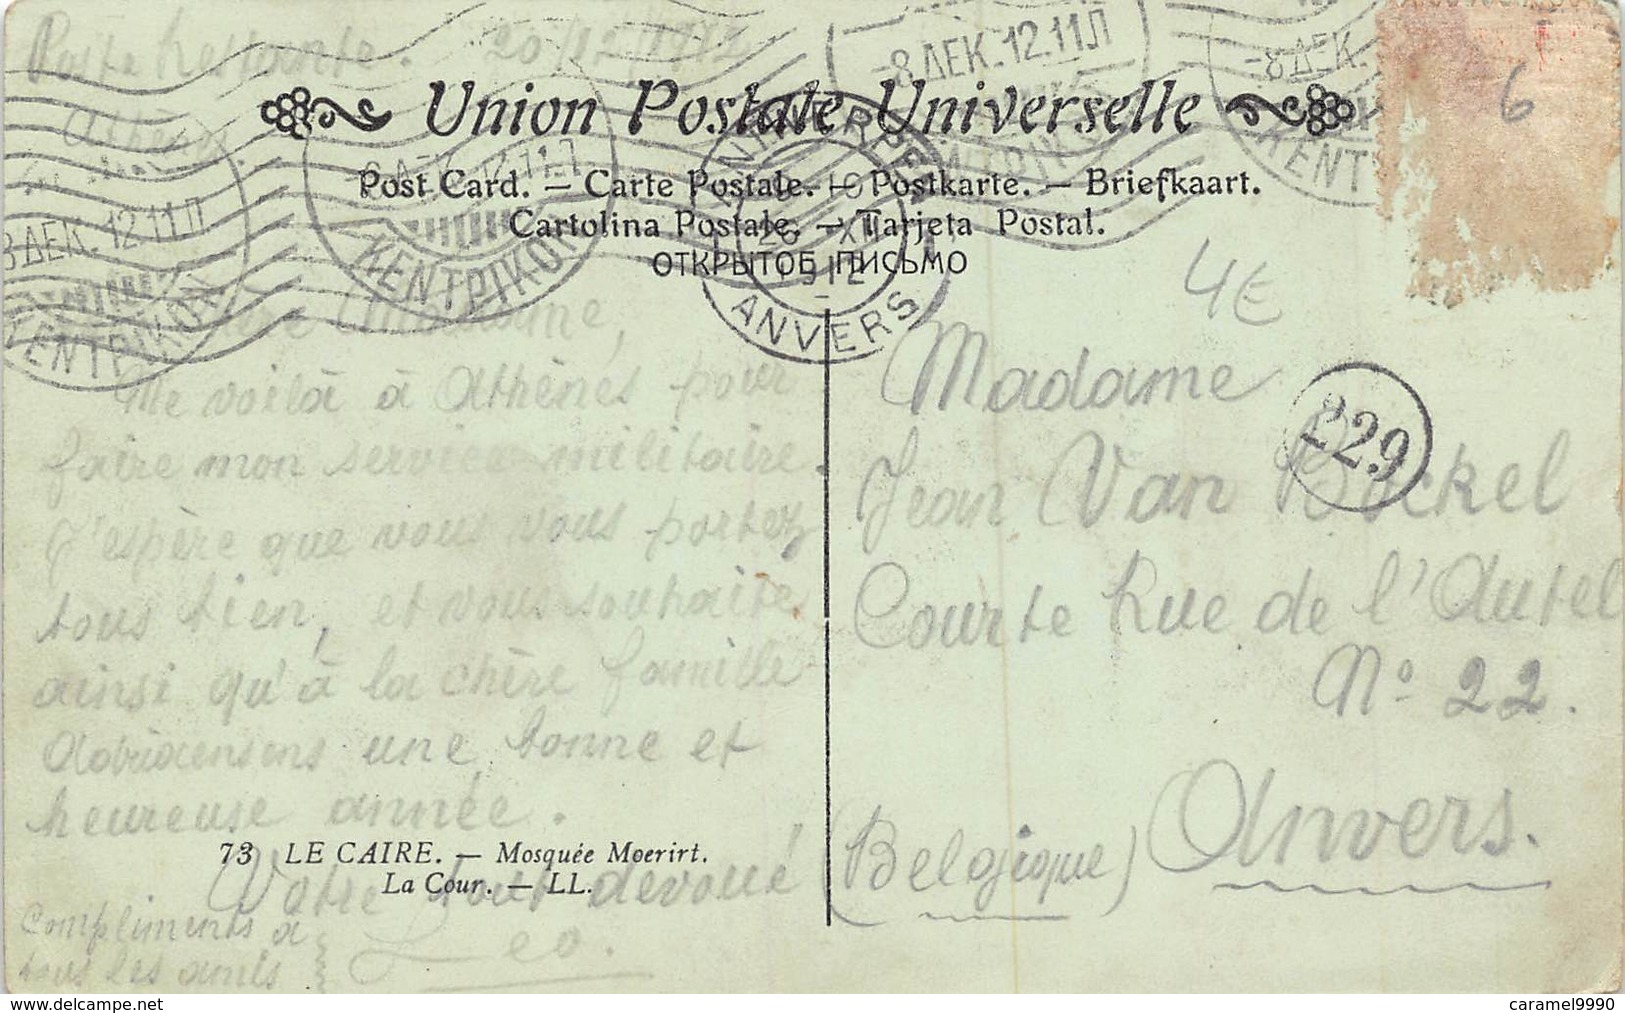 Poste Restante. 20/12 1912
Athènes.
-8 ΔΕΚ. 12.11Π
-8 ΔΕΚ.
6
Union Postale Universelle
Post Card. — Carte Postale. — Postkarte. — Briefkaart.
Cartolina Postale. — Tarjeta Postal.
ОТКРЫТОЕ ПИСЬМО
ANTWERPEN
1912
ANVERS
8 ΔΕΚ. 12.11Π
ΚΕΝΤΡΙΚΟΝ
ΚΕΝΤΡΙΚΟΝ
4€
Madame,
Me voilà à Athènes pour
faire mon service militaire.
J'espère que vous vous portez
tous bien, et vous souhaite
ainsi qu'à la chère famille
Adriaensens une bonne et
heureuse année.
Votre tout dévoué
Leo.
Compliments à
tous les amis
73 LE CAIRE. — Mosquée Moerirt.
La Cour. — LL.
Madame
229
Jean Van Bockel
Courte Rue de l'Autel
Nº 22.
Anvers.
(Belgique)
www.delcampe.net
caramel9990